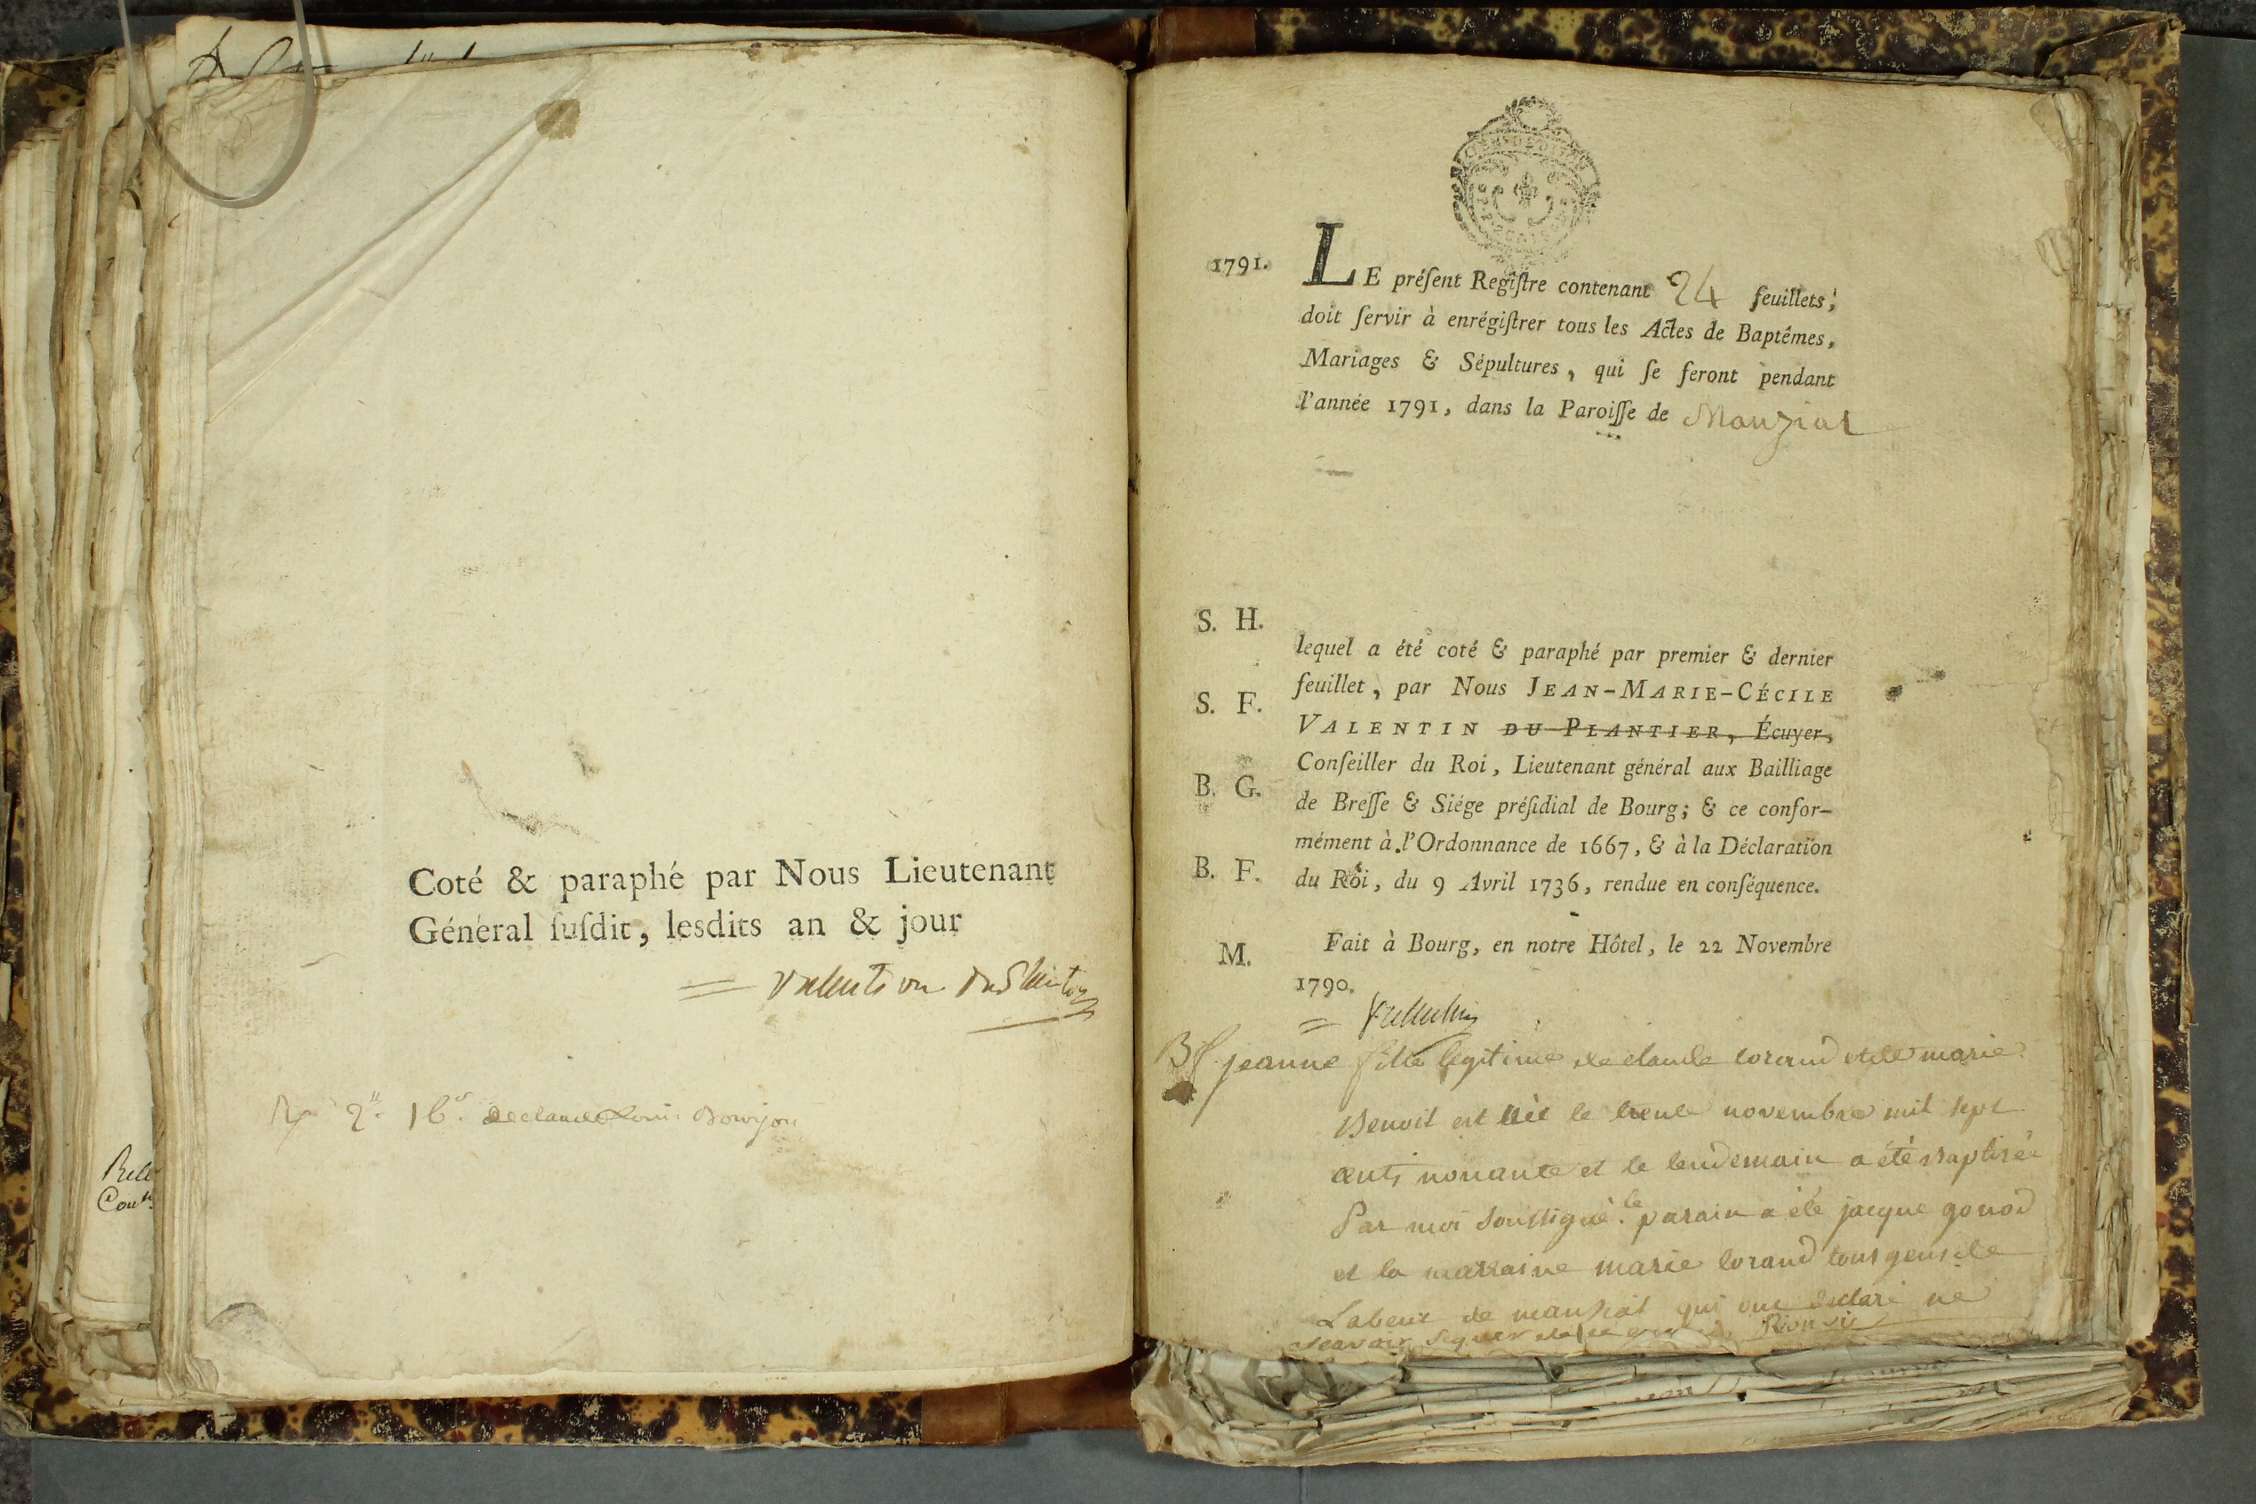 Coté & paraphé par Nous Lieutenant
Général ſuſdit, lesdits an & jour
Valentin du Plantier
de claude Louis Bowjon
1791.
LE préſent Regiſtre contenant 24 feuillets,
doit ſervir à enrégiſtrer tous les Actes de Baptêmes,
Mariages & Sépultures, qui ſe feront pendant
l'année 1791, dans la Paroiſſe de Manziat
S. H.
S. F.
B. G.
B. F.
M.
lequel a été coté & paraphé par premier & dernier
feuillet, par Nous JEAN-MARIE-CÉCILE
VALENTIN DU PLANTIER, Écuyer,
Conſeiller du Roi, Lieutenant général aux Bailliage
de Breſſe & Siége préſidial de Bourg; & ce confor-
mément à l'Ordonnance de 1667, & à la Déclaration
du Roi, du 9 Avril 1736, rendue en conſéquence.
Fait à Bourg, en notre Hôtel, le 22 Novembre
1790.
Valentin
Bf. jeanne fille legitime de claude lorand et de marie
Benoit est née le trente novembre mil sept
cents nonante et le lendemain a été baptisée
Par moi soussigné le parain a été jacque gonod
et la marraine marie lorand tous gens de
Labeur de manziat qui ont declaré ne
scavoir signer de ce